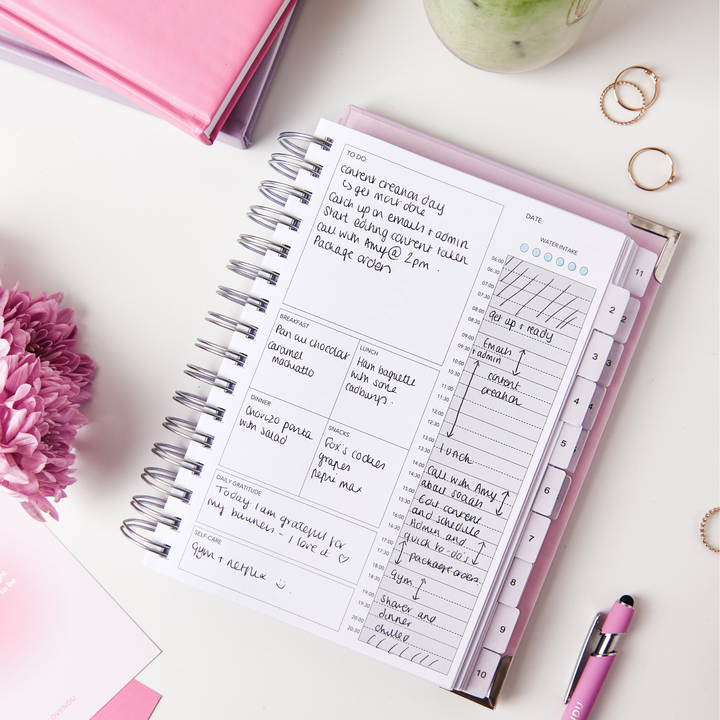 TO DO:
content creation day
↳ get most done
Catch up on emails + admin
Start editing content taken
Call with Amy @ 2pm.
Package orders
DATE:
WATER INTAKE
BREAKFAST
Pan au chocolat
caramel
macchiato
LUNCH
Ham baguette
with some
cadburys.
DINNER
Chorizo pasta
with salad
SNACKS
Fox's cookies
grapes
pepsi max
DAILY GRATITUDE
Today I am grateful for
my business - I love it ♡
SELF CARE
gym + netflix
06:00
06:30
07:00
07:30
08:00
08:30
get up + ready
09:00
Emails
09:30
+ admin
10:00
10:30
content
11:00
creation
11:30
12:00
12:30
13:00
13:30
lunch
14:00
14:30
Call with Amy
15:00
about socials
15:30
Edit content
16:00
and schedule
16:30
Admin and
17:00
quick to-do's
17:30
package orders
18:00
18:30
gym
19:00
19:30
shower and
20:00
dinner
20:30
chilled
11
2 2
3 3
4 4
5
6
7
8
9
10